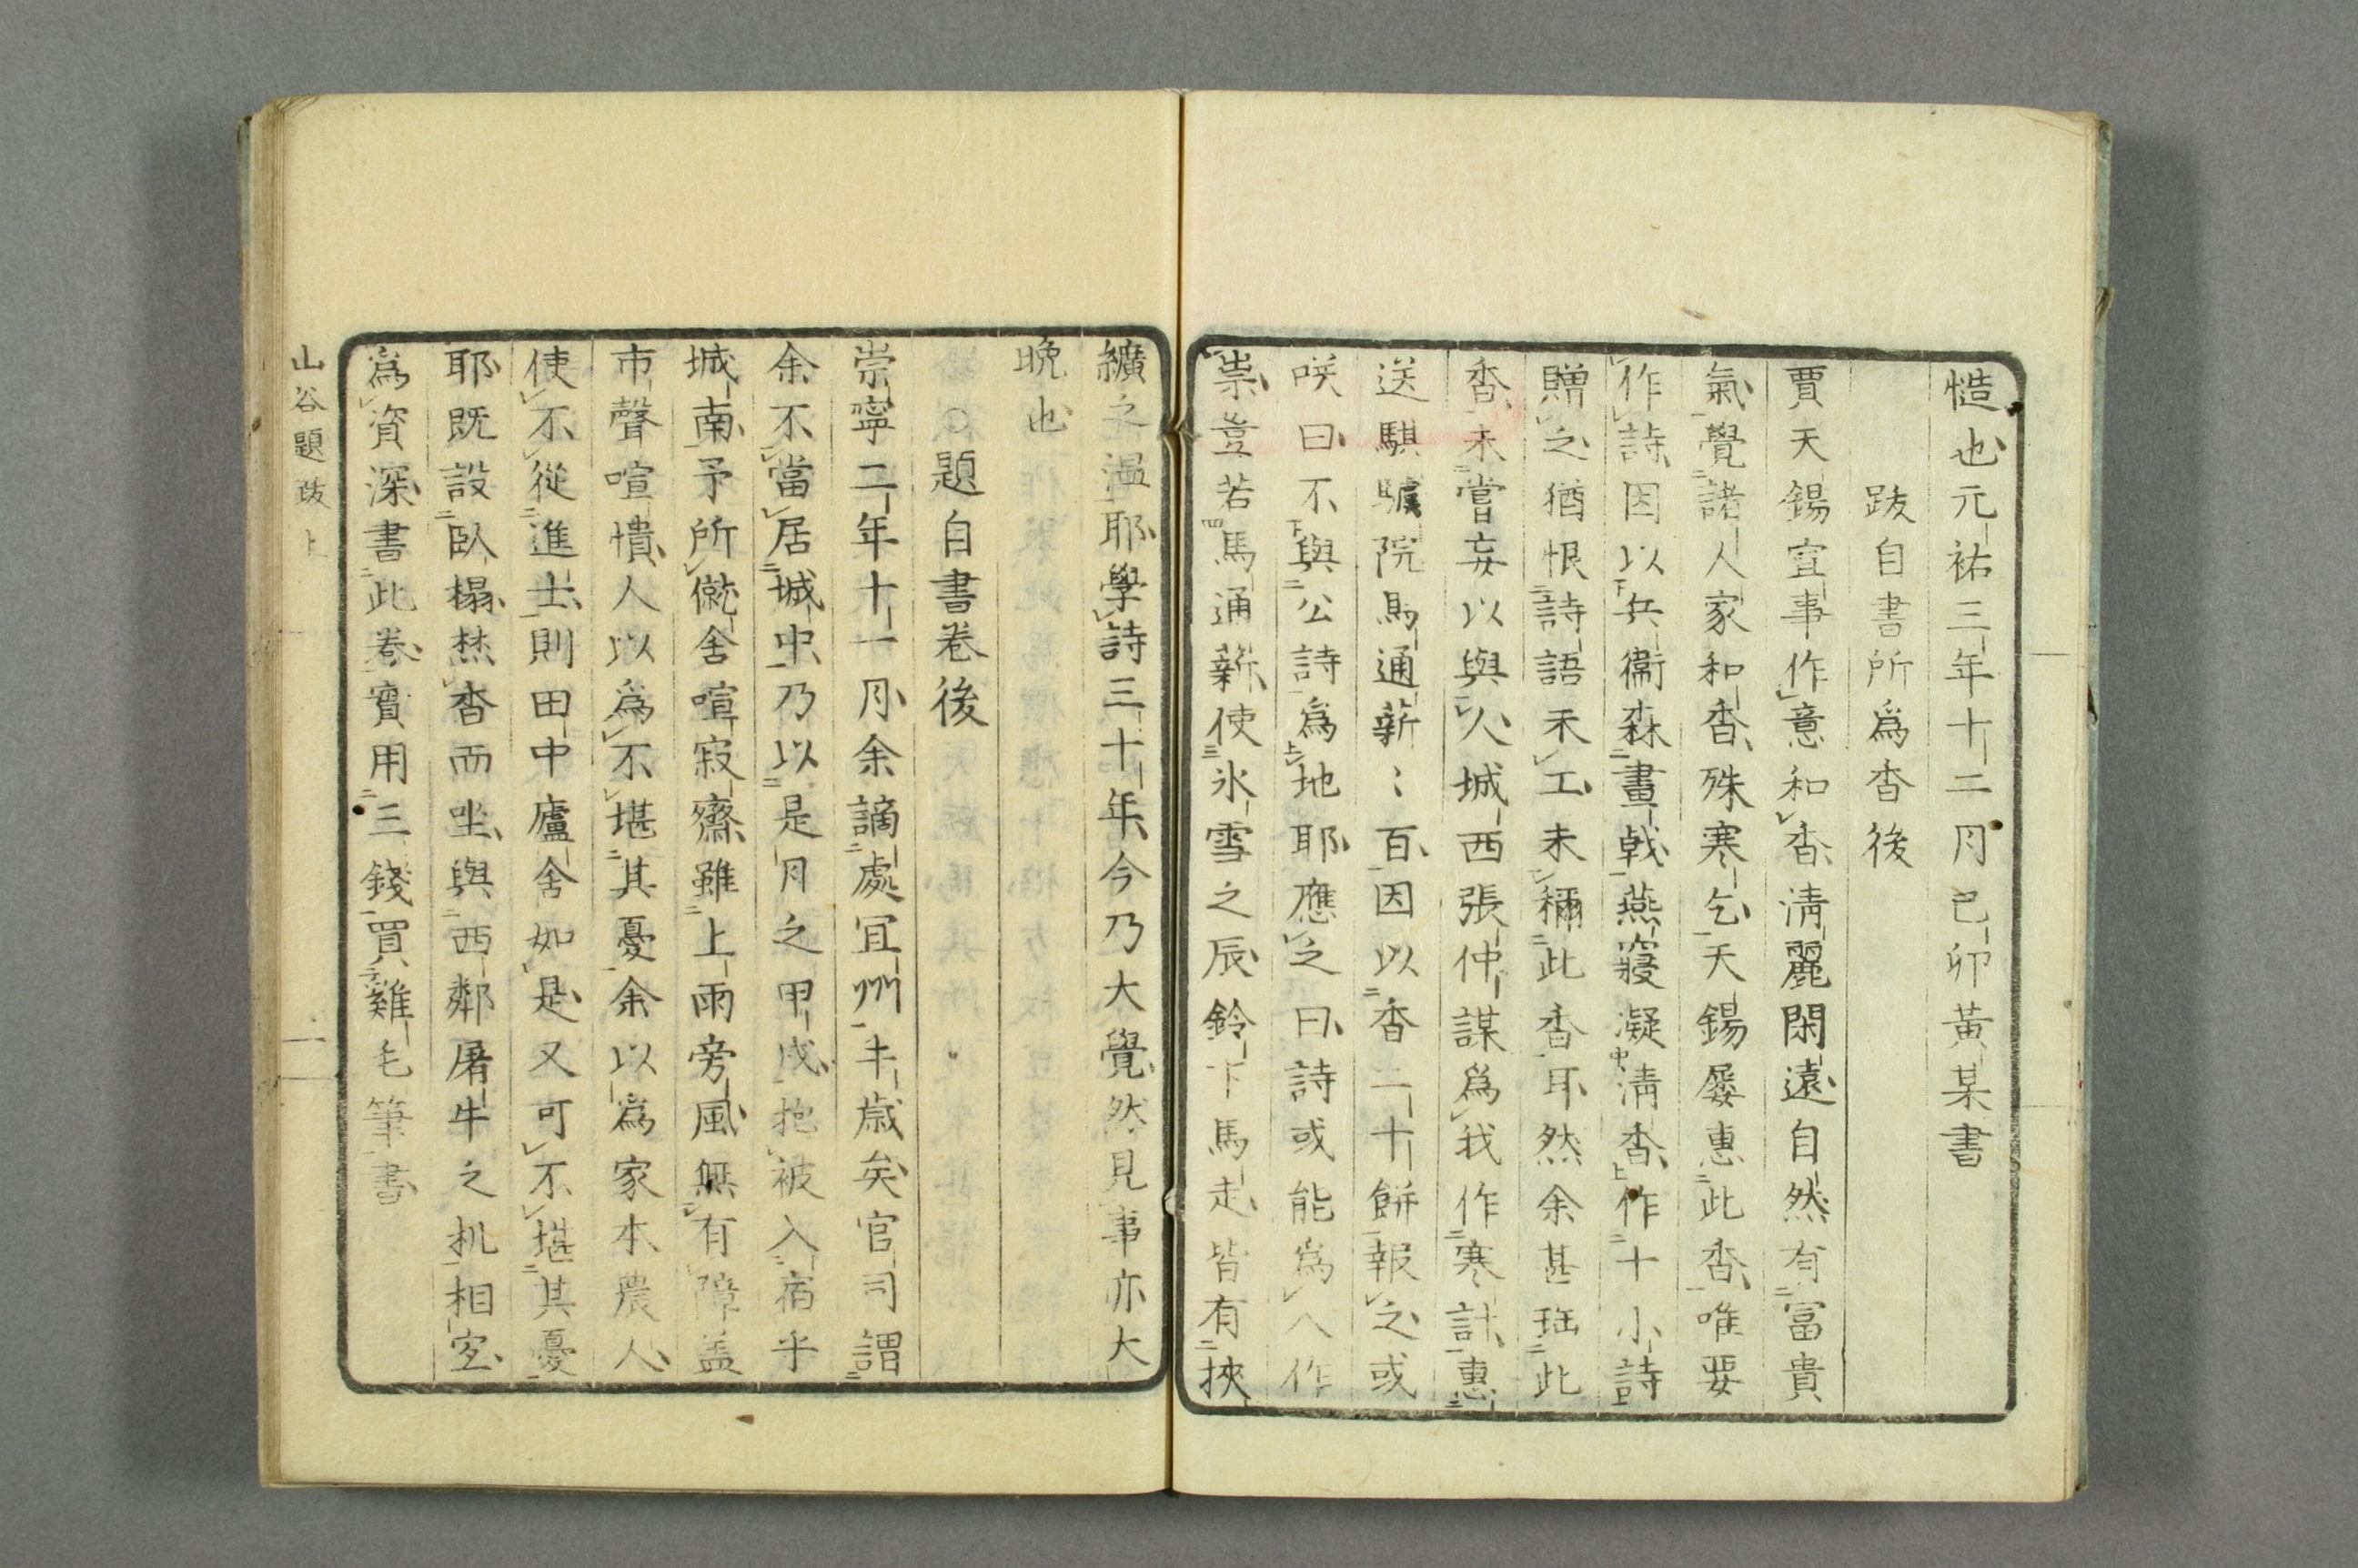 慥也元祐三年十二月己卯黃某書
跋自書所爲香後
賈天錫宣事作意和香清麗閑遠自然有富貴
氣覺諸人家和香殊寒乞天錫屢惠此香唯要
作詩因以兵衞森畫戟燕寢凝清香作十小詩
贈之猶恨詩語未工未稱此香耳然余甚珤此
香未嘗妄以與人城西張仲謀爲我作寒計惠
送騏驥院馬通薪〻百因以香二十餅報之或
咲曰不與公詩爲地耶應之曰詩或能爲人作
祟豈若馬通薪使氷雪之辰鈴下馬走皆有挾
纊之温耶學詩三十年今乃大覺然見事亦大
晩也
○題自書卷後
崇寧二年十一月余謫處冝州半歲矣官司謂
余不當居城中乃以是月之甲戌抱被入宿乎
城南予所僦舍喧寂齋雖上雨旁風無有障盖
市聲喧憒人以爲不堪其憂余以爲家本農人
使不從進士則田中廬舍如是又可不堪其憂
耶既設臥榻焚香而坐與西鄰屠牛之机相直
爲資深書此卷實用三錢買雞毛筆書
山谷題跋上
二